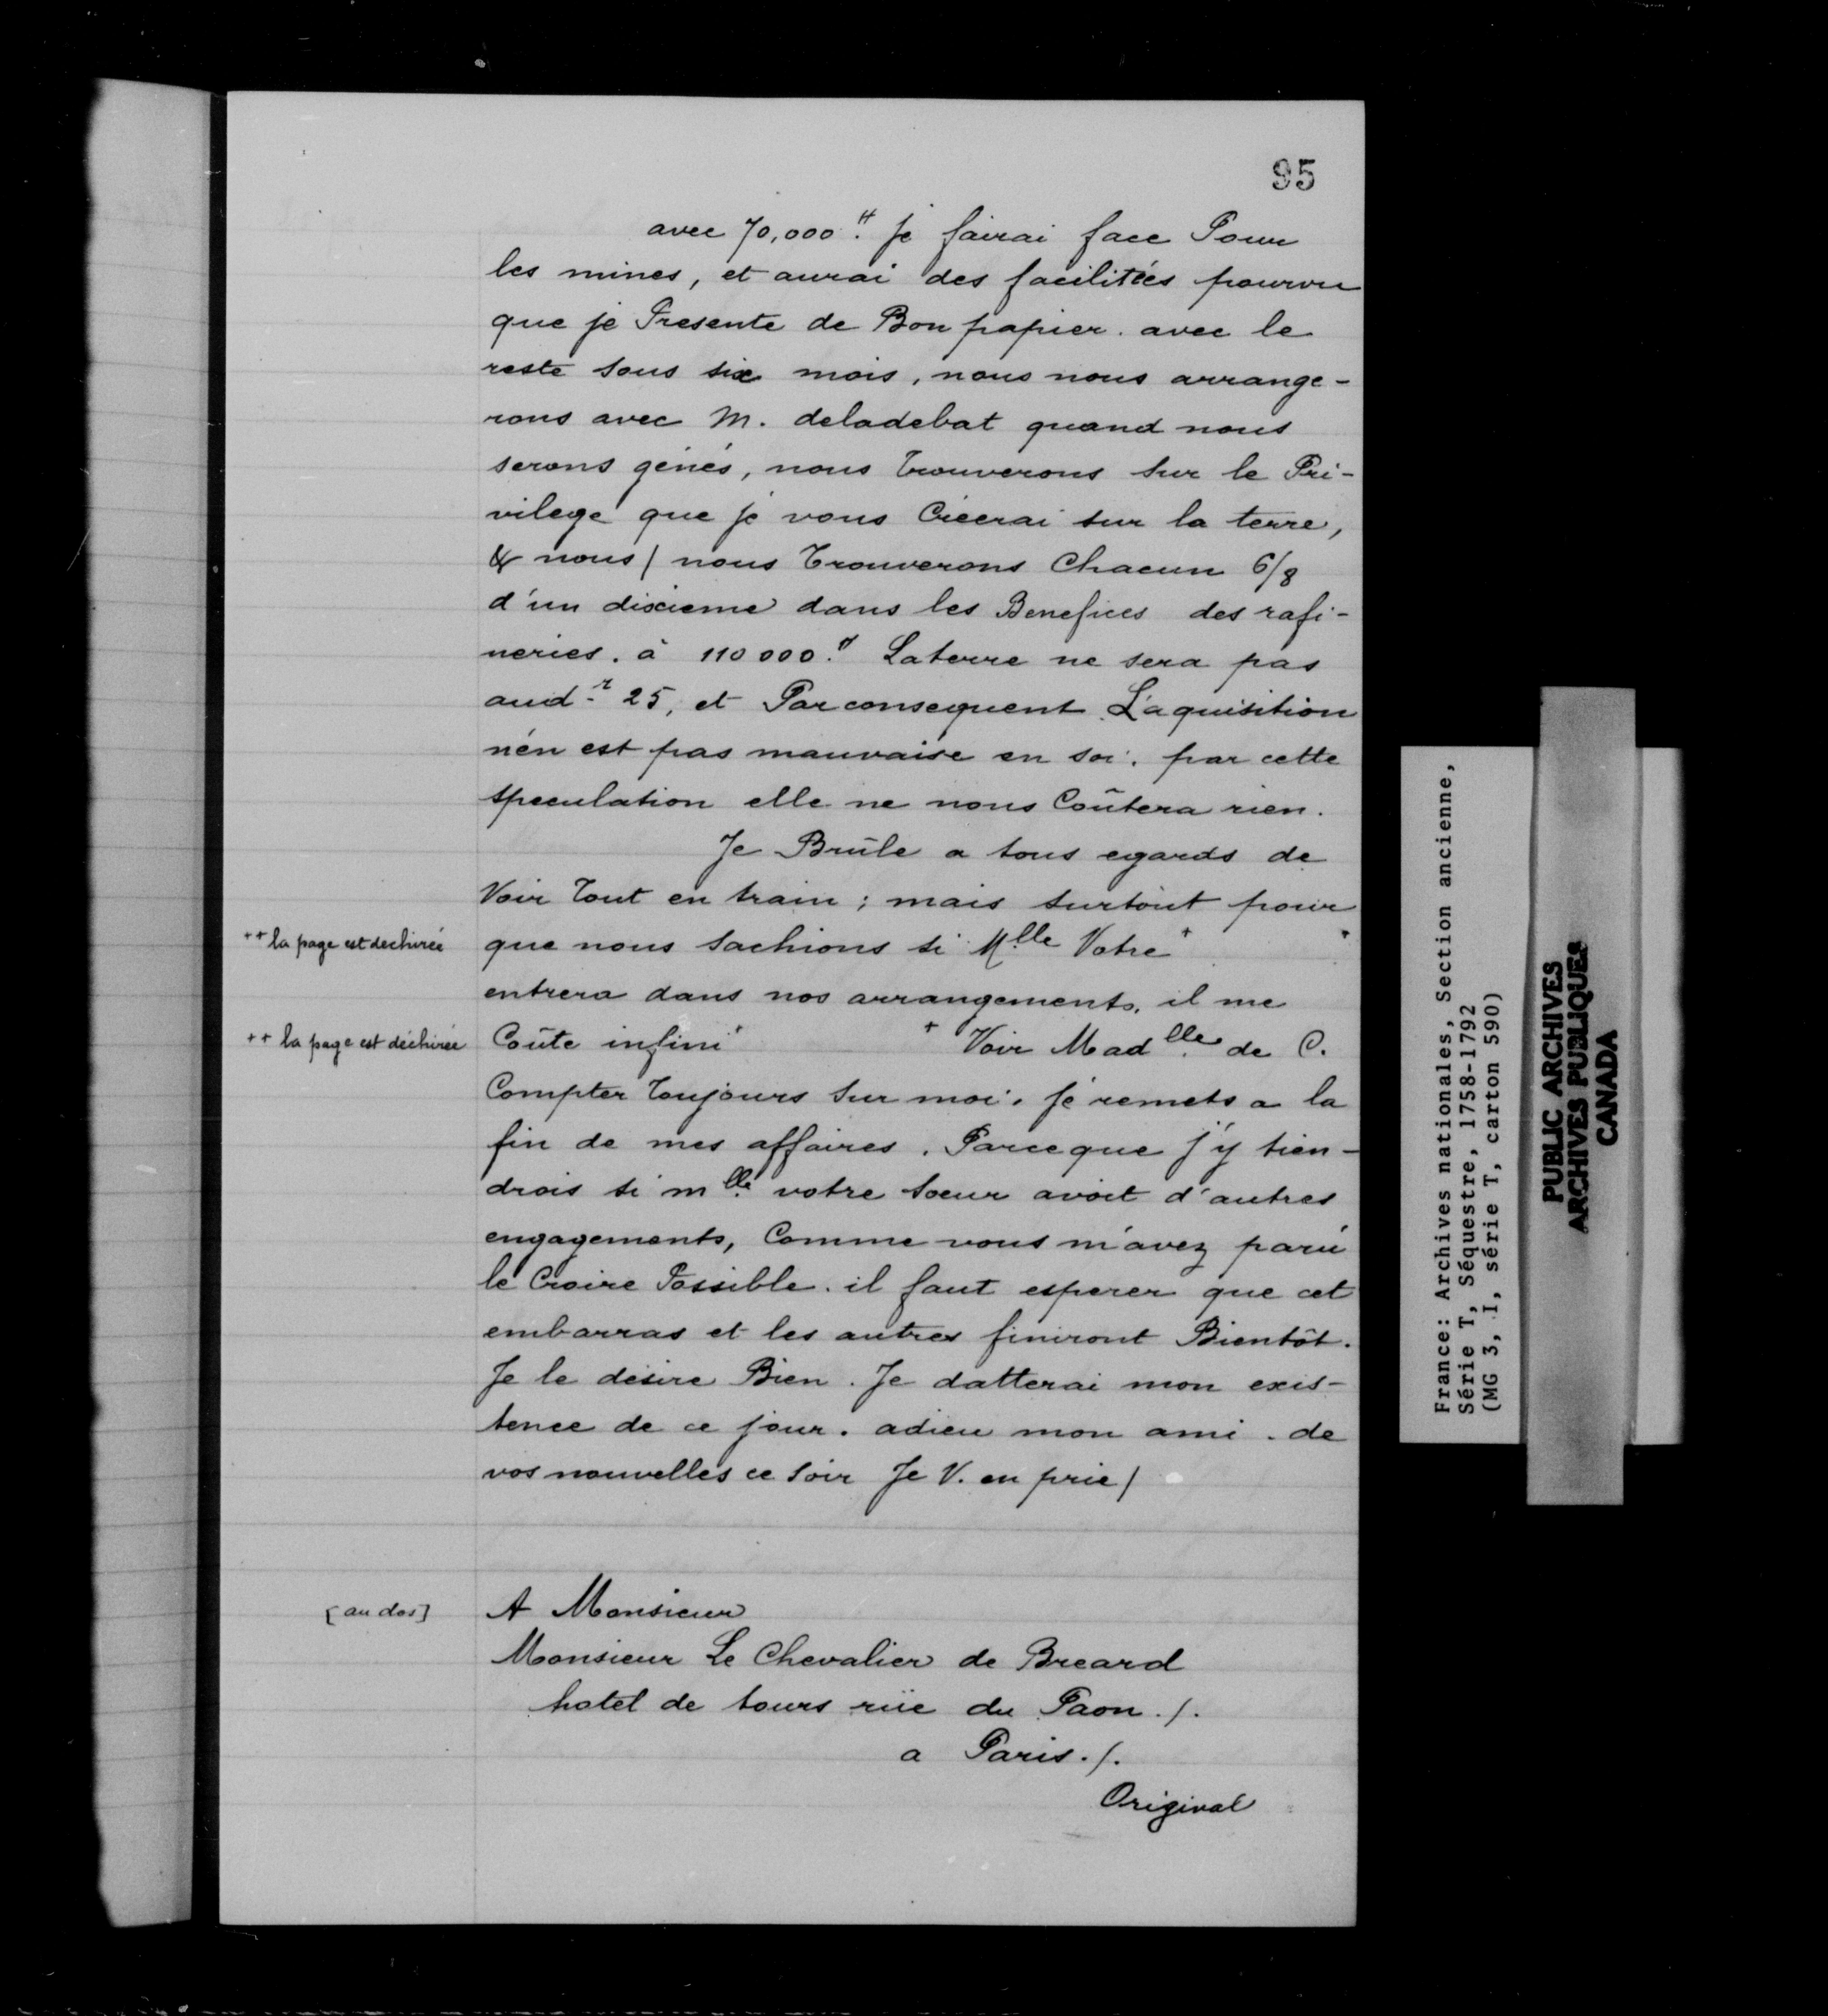 95
avec 70,000.# Je fairai face Pour
les mines, et aurai des facilitiés pourvu
que je Presente de Bon papier. avec le
reste sous six mois, nous nous arrange-
rons avec M. deladebat quand nous
serons génés, nous Trouverons sur le Pri-
vilege que je vous Créerai sur la terre,
& nous / nous Trouverons Chacun 6/8
d'un dixieme dans les Benefices des rafi-
neries. à 110000.# Laterre ne sera pas
aud.r 25, et Par consequent L'aquisition
n'én est pas mauvaise en soi. par cette
speculation elle ne nous Coûtera rien.
Je Brûle a tous egards de
Voir Tout en train; mais surtout pour
++ la page est dechirée
que nous sachions si M.lle Votre + +
entrera dans nos arrangements. il me
++ la page est déchirée
Coûte infini + + Voir Mad.lle de C.
Compter Toujours sur moi. Je remets a la
fin de mes affaires. Parceque j'y tien-
drois si m.lle votre soeur avoit d'autres
engagements, Comme vous m'avez parú
le Croire Possible. il faut esperer que cet
embarras et les autres finiront Bientôt.
Je le desire Bien. Je datterai mon exis-
tence de ce jour. adieu mon ami. de
vos nouvelles ce soir Je V. en prie /
[au dos]
A Monsieur
Monsieur Le Chevalier de Breard
hotel de tours rüe du Paon ./.
a Paris ./.
Original
France: Archives nationales, Section ancienne,
Série T, Séquestre, 1758-1792
(MG 3, I, série T, carton 590)
PUBLIC ARCHIVES
ARCHIVES PUBLIQUES
CANADA